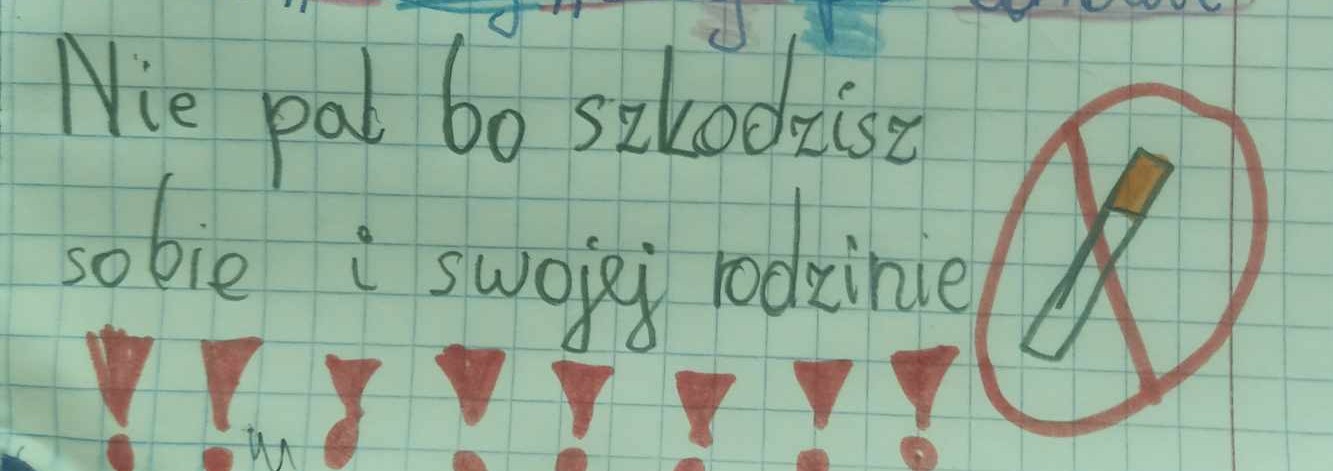 Nie pal bo szkodzisz
sobie i swojej rodzinie
! ! ! ! ! ! ! !